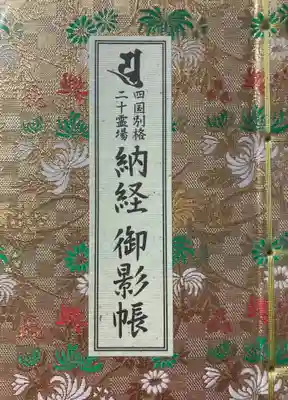 四国別格
二十霊場
納経御影帳